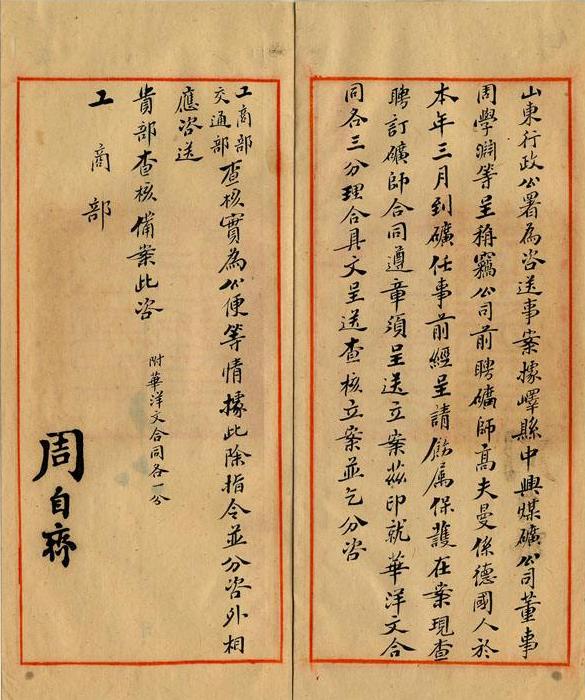 山東行政公署為咨送事案據嶧縣中興煤礦公司董事
周學淵等呈稱竊公司前聘礦師高夫曼係德國人於
本年三月到礦任事前經呈請飭属保護在案現查
聘訂礦師合同遵章須呈送立案茲印就華洋文合
同各三分理合具文呈送查核立案並乞分咨
工商部
交通部
查核實為公便等情據此除指令並分咨外相
應咨送
貴部查核備案此咨
附華洋文合同各一分
工商部
周自齊